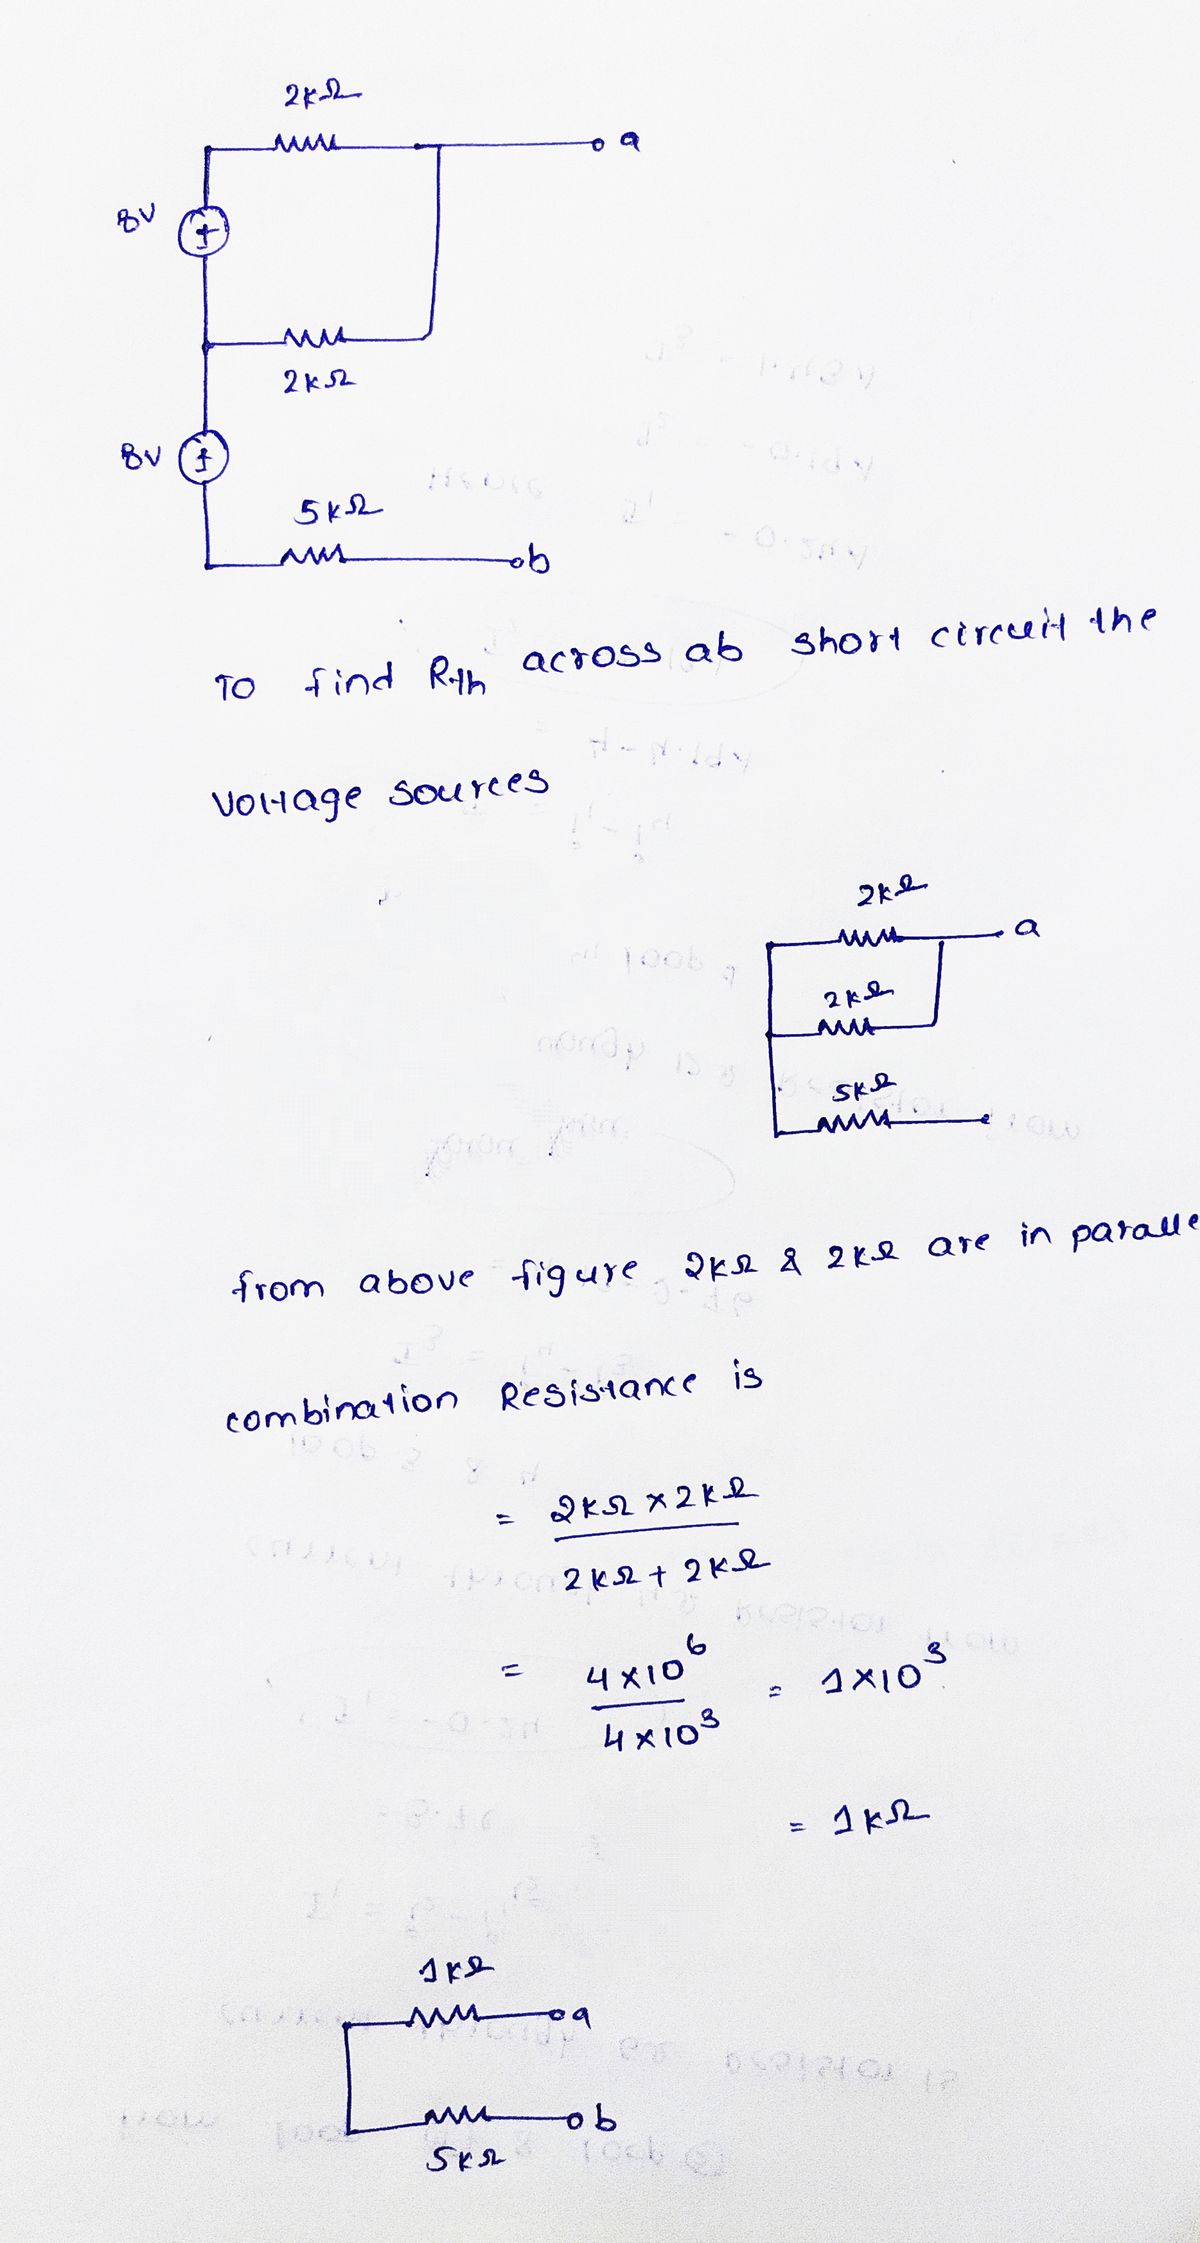 2kΩ
a
8V
+
2kΩ
8V
+
5kΩ
b
To find Rth across ab short circuit the
voltage sources
2kΩ
a
2kΩ
5kΩ
from above figure 2kΩ & 2kΩ are in paralle
combination Resistance is
= 2kΩ × 2kΩ
2kΩ + 2kΩ
= 4×10⁶ = 1×10³
4×10³
= 1kΩ
1kΩ
a
b
5kΩ